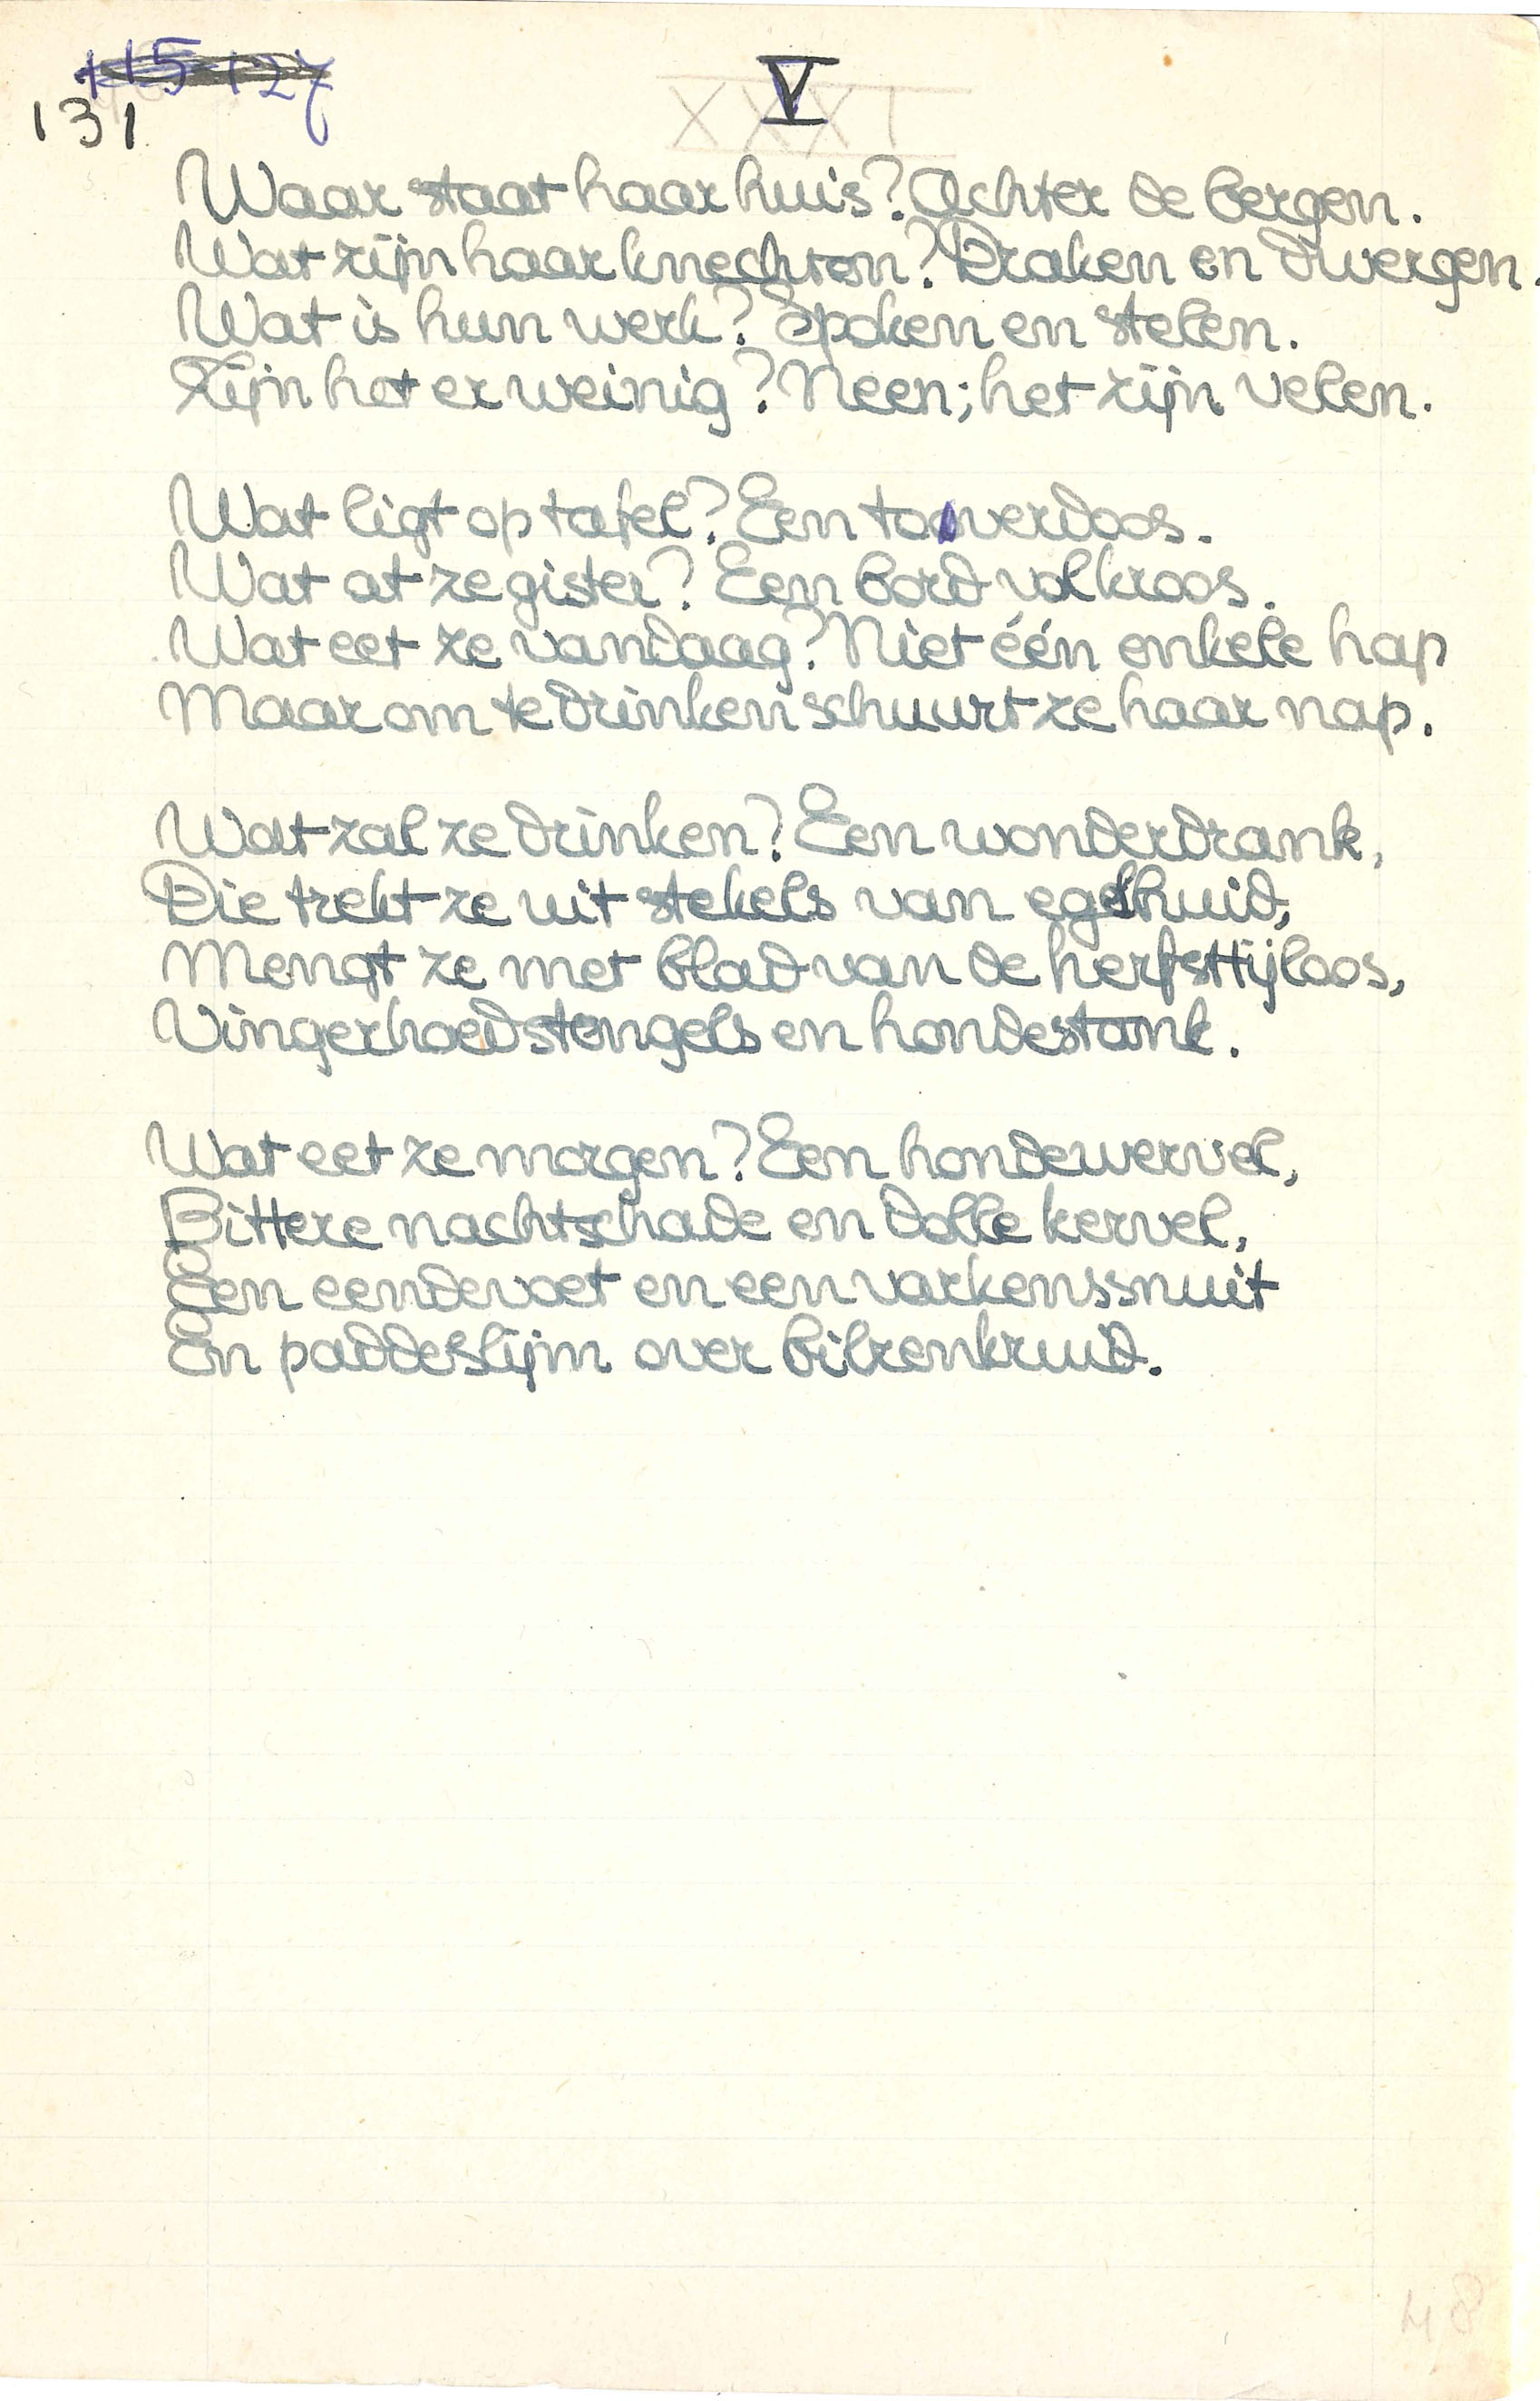 115 127
131
V
XXXI
Waar staat haar huis? Achter de bergen.
Wat zijn haar knechten? Draken en dwergen.
Wat is hun werk? Spoken en stelen.
Zijn het er weinig? Neen; het zijn velen.
Wat ligt op tafel? Een toverdoos.
Wat at ze gister? Een bord vol kroos.
Wat eet ze vandaag? Niet één enkele hap
Maar om te drinken schuurt ze haar nap.
Wat zal ze drinken? Een wonderdrank,
Die trekt ze uit stekels van egelhuid,
Mengt ze met blad van de herfsttijloos,
Vingerhoedstengels en hondestank.
Wat eet ze morgen? Een hondewervel,
Bittere nachtschade en dolle kervel,
Een eendevoet en een varkenssnuit
En paddeslijm over bilzenkruid.
48